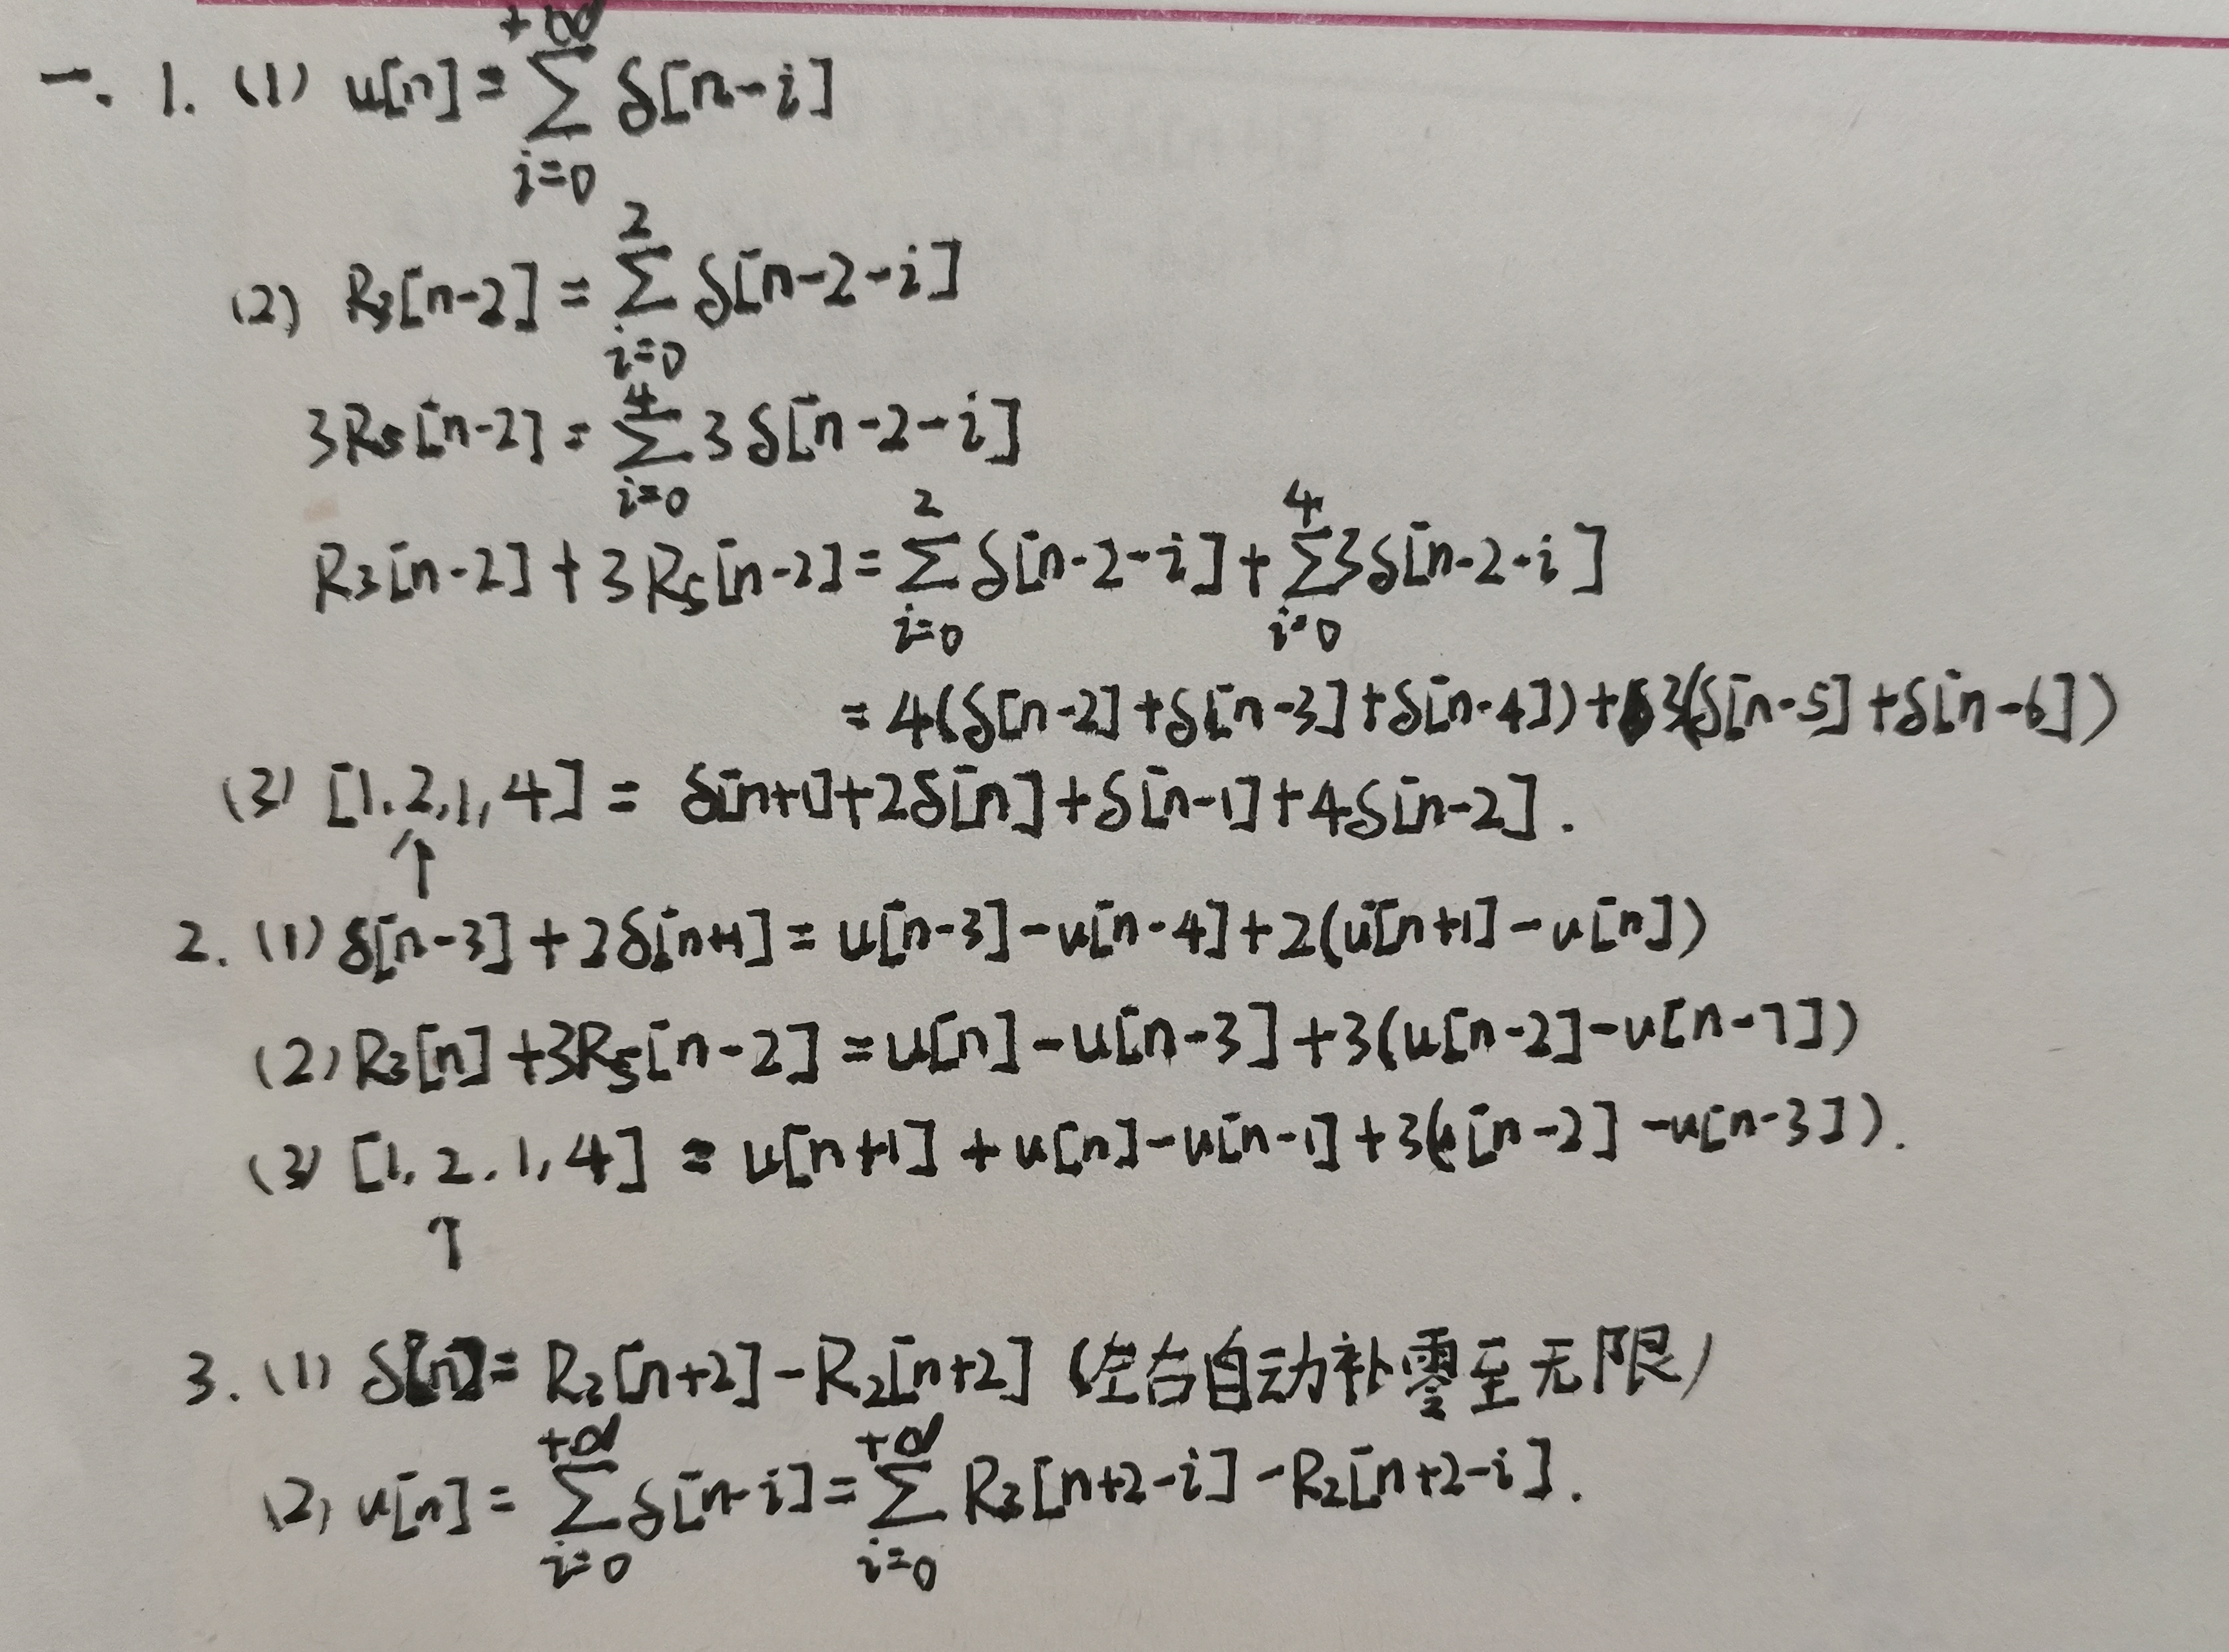 一. 1. (1) u[n] = \sum_{i=0}^{+∞} δ[n-i]
(2) R₃[n-2] = \sum_{i=0}^{2} δ[n-2-i]
3R₅[n-2] = \sum_{i=0}^{4} 3δ[n-2-i]
R₃[n-2] + 3R₅[n-2] = \sum_{i=0}^{2} δ[n-2-i] + \sum_{i=0}^{4} 3δ[n-2-i]
= 4(δ[n-2] + δ[n-3] + δ[n-4]) + 3(δ[n-5] + δ[n-6])
(3) [1,2,1,4] = δ[n+1] + 2δ[n] + δ[n-1] + 4δ[n-2].
↑
2. (1) δ[n-3] + 2δ[n+1] = u[n-3] - u[n-4] + 2(u[n+1] - u[n])
(2) R₃[n] + 3R₅[n-2] = u[n] - u[n-3] + 3(u[n-2] - u[n-7])
(3) [1,2,1,4] = u[n+1] + u[n] - u[n-1] + 3(u[n-2] - u[n-3]).
↑
3. (1) δ[n] = R₃[n+2] - R₂[n+2] (左右自动补零至无限)
(2) u[n] = \sum_{i=0}^{+∞} δ[n-i] = \sum_{i=0}^{+∞} R₃[n+2-i] - R₂[n+2-i].